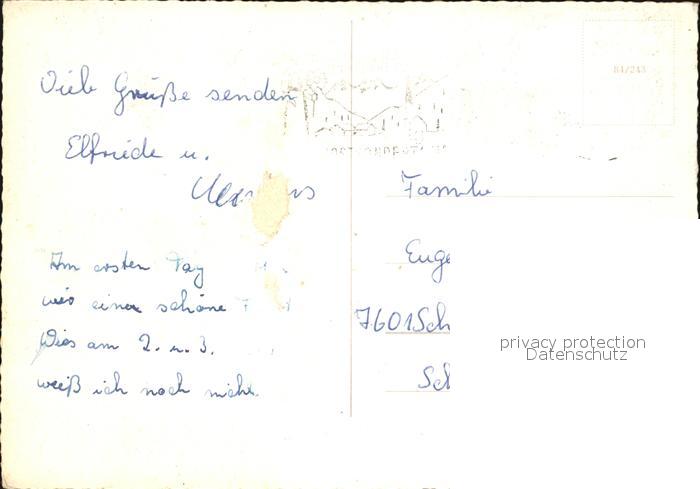 Viele Grüße senden
Elfriede u.
Am ersten Tag
wir eine schöne
Wies am 2. u. 3.
weiß ich noch nicht.
84/243
Familie
Euge
7601 Sch
Sch
privacy protection
Datenschutz